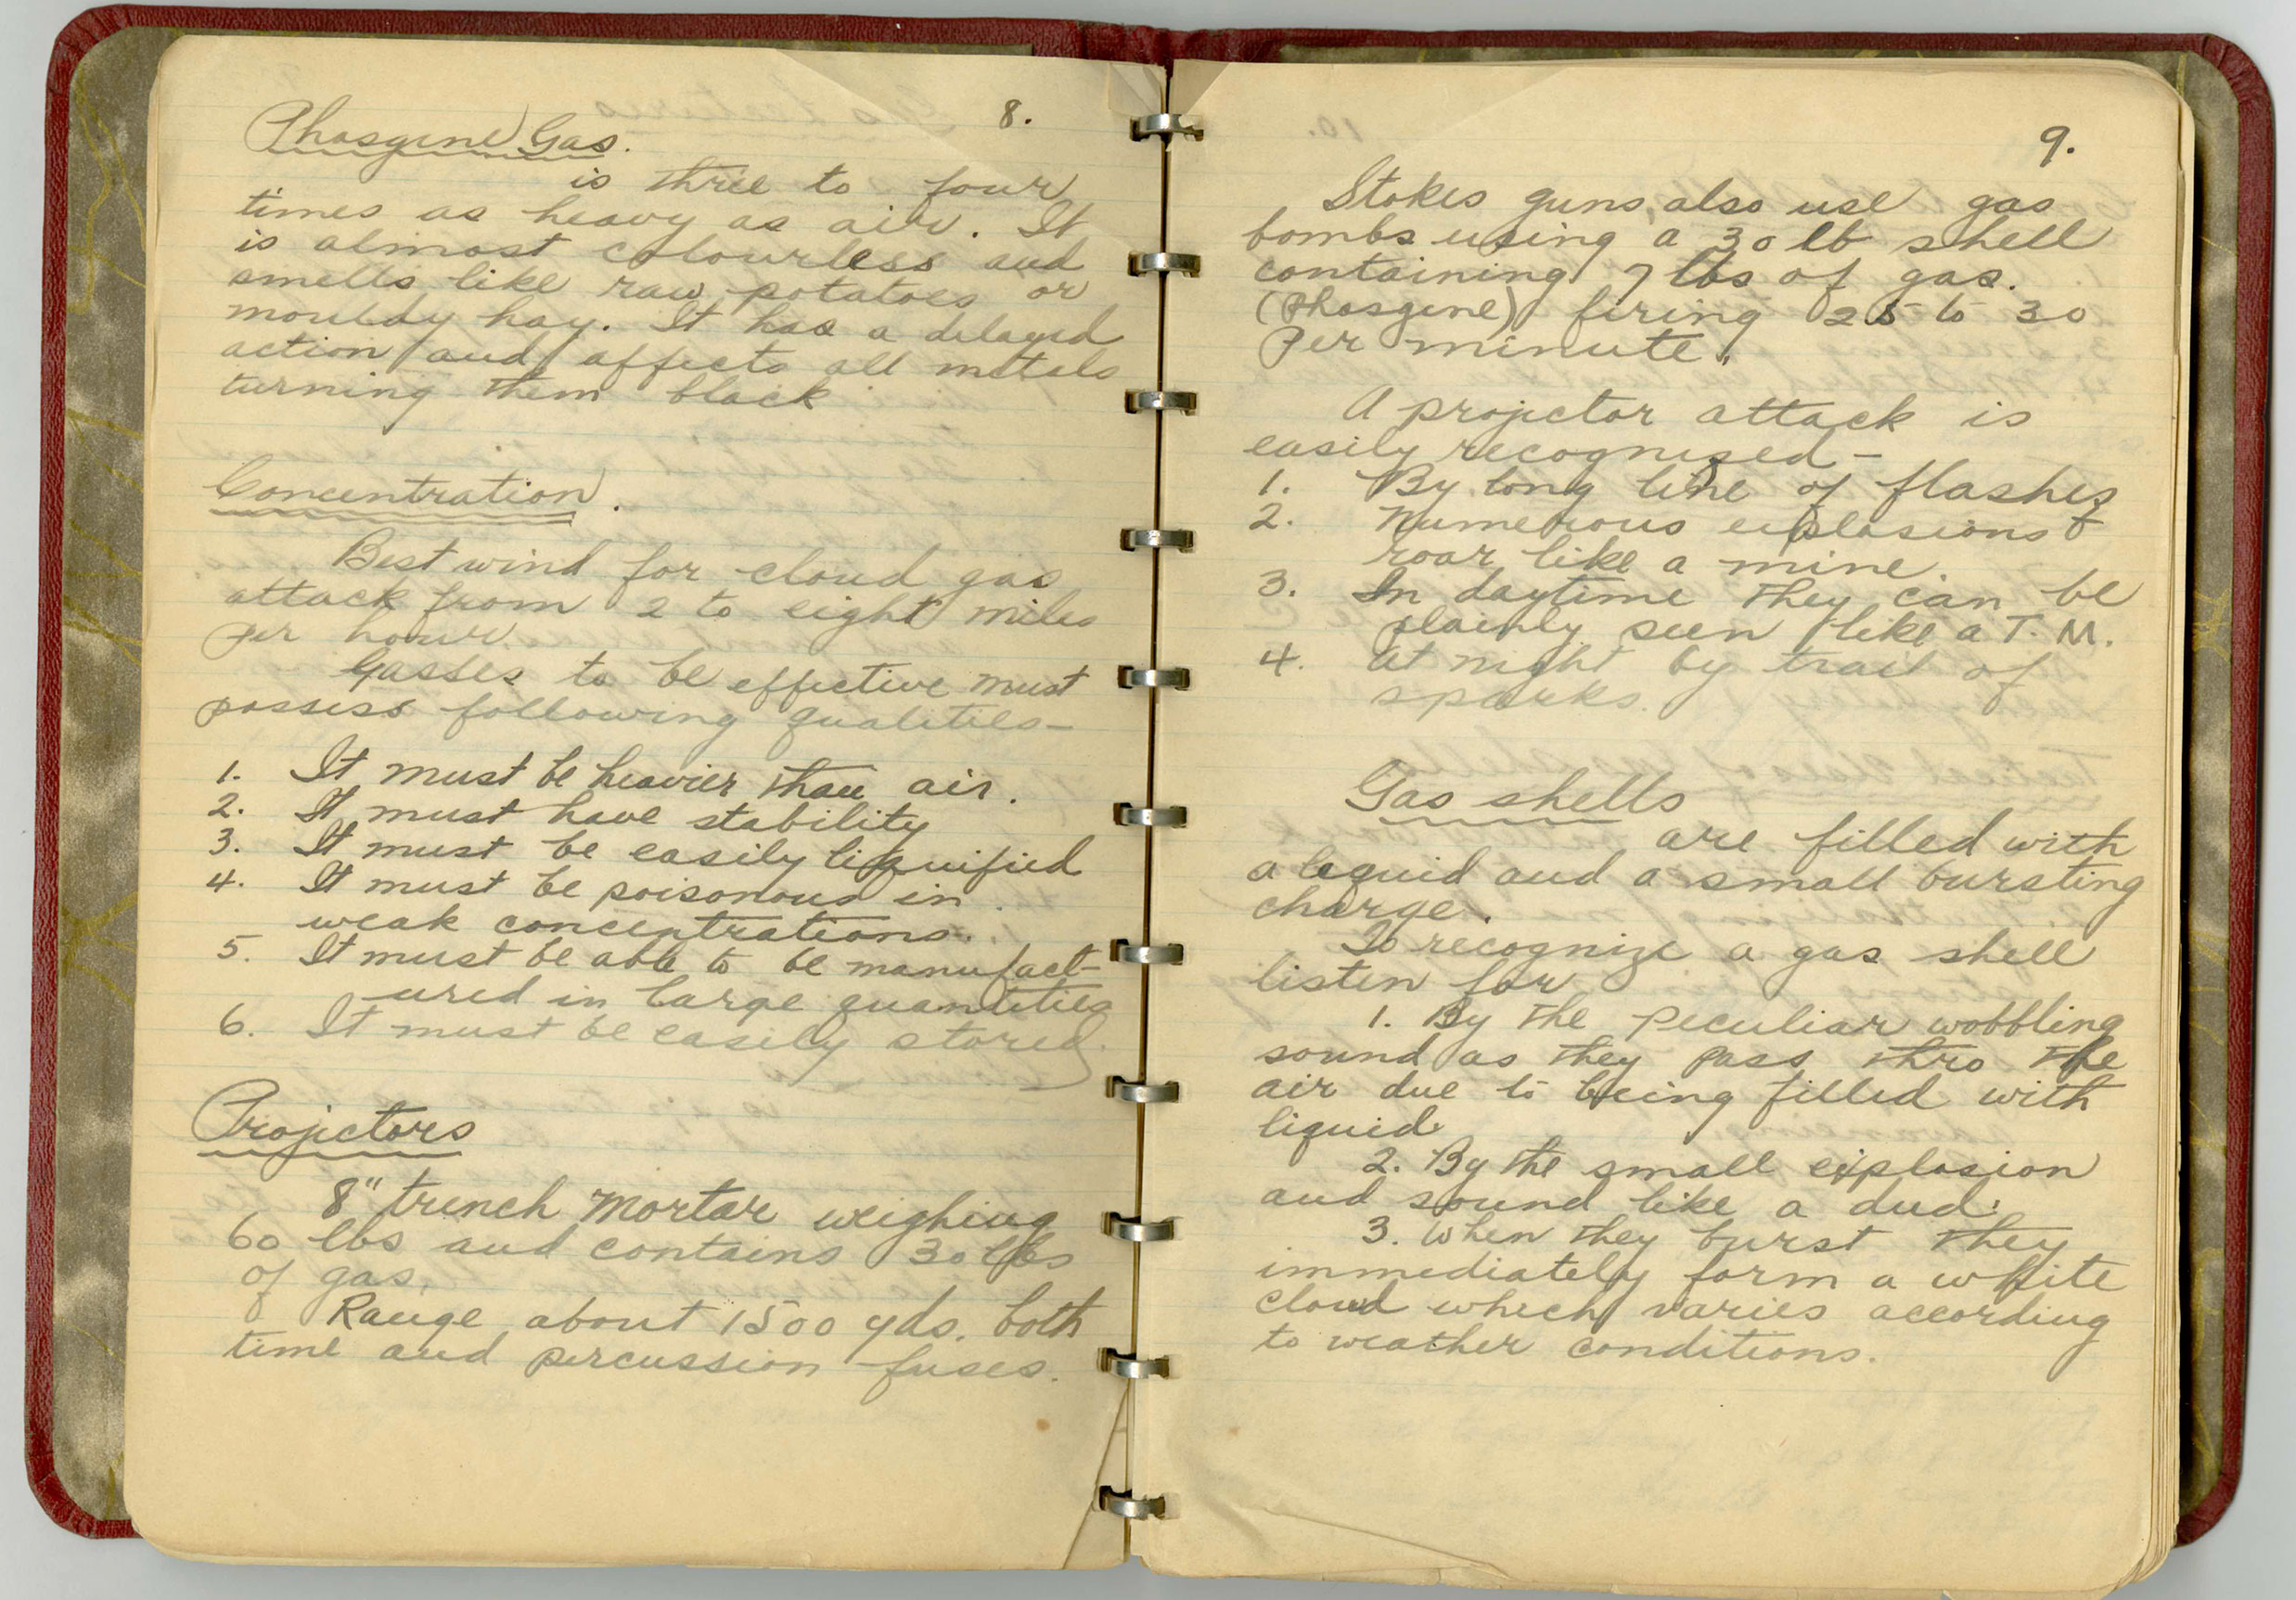 8.
Phosgene Gas.
is three to four
times as heavy as air. It
is almost colourless and
smells like raw potatoes or
mouldy hay. It has a delayed
action and affects all metals
turning them black
Concentration.
Best wind for cloud gas
attack from 2 to eight miles
per hour.
Gasses to be effective must
possess following qualities—
1. It must be heavier than air.
2. It must have stability
3. It must be easily liquified
4. It must be poisonous in
weak concentrations.
5. It must be able to be manufact-
ured in large quantities
6. It must be easily stored.
Projectors
8" trench mortar weighing
60 lbs and contains 30 lbs
of gas.
Range about 1500 yds. both
time and percussion fuses.
9.
Stokes guns, also use gas
bombs using a 30 lb shell
containing 7 lbs of gas.
(Phosgene) firing 25 to 30
Per minute.
A projector attack is
easily recognised—
1. By long line of flashes
2. Numerous explosions &
roar like a mine.
3. In daytime they can be
plainly seen like a T.M.
4. At night by trail of
sparks.
Gas shells
are filled with
a liquid and a small bursting
charge.
To recognize a gas shell
listen for
1. By the peculiar wobbling
sound as they pass thro the
air due to being filled with
liquid.
2. By the small explosion
and sound like a dud.
3. When they burst they
immediately form a white
cloud which varies according
to weather conditions.